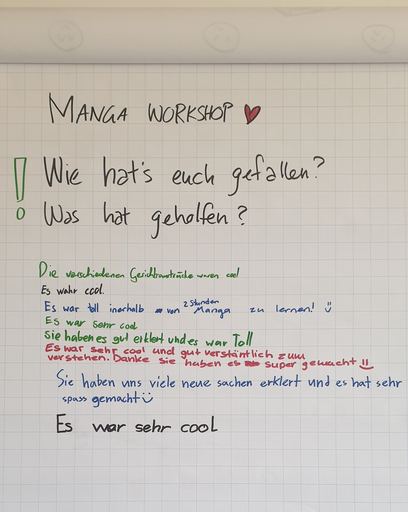 MANGA WORKSHOP ♥
! Wie hat's euch gefallen?
Was hat geholfen?
Die verschiedenen Gesichtsausdrücke waren cool
Es wahr cool.
Es war toll inerhalb von 2 Stunden Manga zu lernen! :)
Es war sehr cool
Sie haben es gut erklert und es war Toll
Es war sehr cool und gut verstäntlich zum
verstehen. Danke sie haben es super gemacht !!
Sie haben uns viele neue sachen erklert und es hat sehr
spass gemacht :)
Es war sehr cool